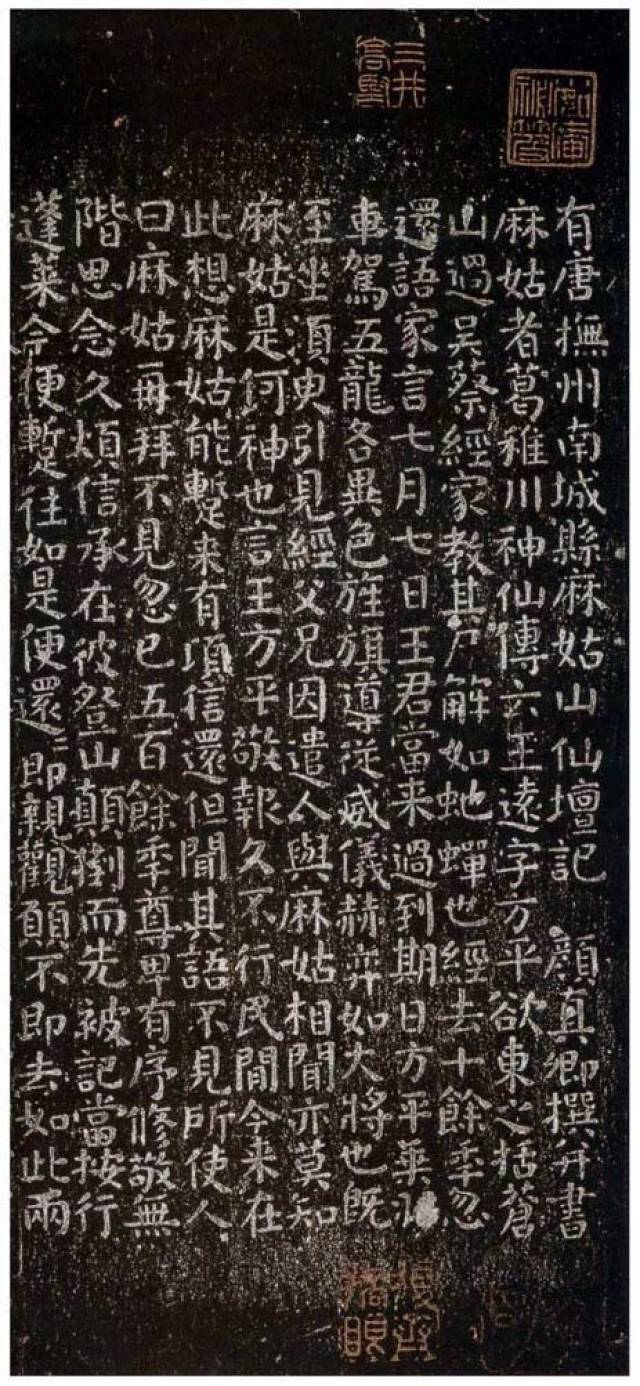 有唐撫州南城縣麻姑山仙壇記　顏真卿撰并書
麻姑者葛稚川神仙傳云王遠字方平欲東之括蒼
山過吳蔡經家教其尸解如虵蟬也經去十餘年忽
還語家言七月七日王君當来過到期日方平乘羽
車駕五龍各異色旌旗導從威儀赫弈如大將也既
至坐須臾引見經父兄因遣人與麻姑相聞亦莫知
麻姑是何神也言王方平敬報久不行民間今来在
此想麻姑能蹔来有頃信還但聞其語不見所使人
曰麻姑再拜不見忽已五百餘年尊卑有序修敬無
階思念久煩信承在彼登山顛倒而先被記當按行
蓬萊今便蹔往如是便還還即親觀願不即去如此兩